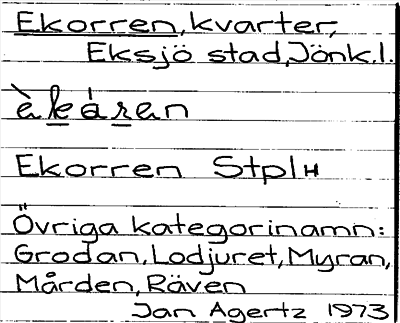 Ekorren, kvarter,
Eksjö stad, Jönk.l.
Ekorren Stpl H
Övriga kategorinamn:
Grodan, Lodjuret, Myran,
Mården, Räven
Jan Agertz 1973